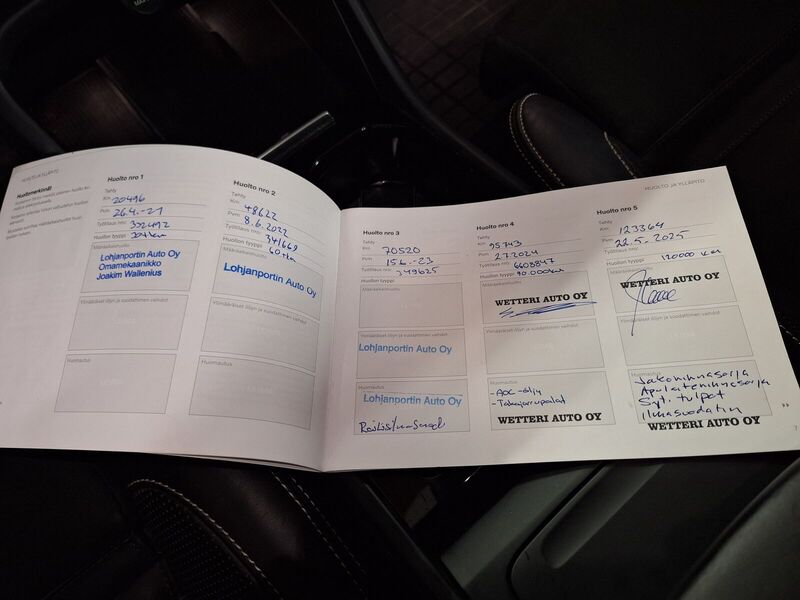 HUOLTO JA YLLÄPITO
Huoltomerkinnät
Huolto nro 1
Tehty
Km 20496
Pvm 26.4.-21
Työtilaus nro:
Huollon tyyppi 30tkm
Määräaikaishuolto
Lohjanportin Auto Oy
Omamekaanikko
Joakim Wallenius
Ylimääräiset öljyn ja suodattimen vaihdot
Huomautus
Huolto nro 2
Tehty
Km 48622
Pvm 8.6.2022
Työtilaus nro: 341669
Huollon tyyppi 60tkm
Määräaikaishuolto
Lohjanportin Auto Oy
Ylimääräiset öljyn ja suodattimen vaihdot
Huomautus
Huolto nro 3
Tehty
Km 70520
Pvm 15.6.-23
Työtilaus nro: 349625
Huollon tyyppi
Määräaikaishuolto
Ylimääräiset öljyn ja suodattimen vaihdot
Lohjanportin Auto Oy
Huomautus
Lohjanportin Auto Oy
Huolto nro 4
Tehty
Km 95743
Pvm 2.7.2024
Työtilaus nro: 6608847
Huollon tyyppi 90.000km
Määräaikaishuolto
WETTERI AUTO OY
Ylimääräiset öljyn ja suodattimen vaihdot
Huomautus
- AOC-öljy
- Takajarrupalat
WETTERI AUTO OY
HUOLTO JA YLLÄPITO
Huolto nro 5
Tehty
Km 123364
Pvm 22.5.2025
Työtilaus nro:
Huollon tyyppi 120000 km
Määräaikaishuolto
WETTERI AUTO OY
Ylimääräiset öljyn ja suodattimen vaihdot
Huomautus
Jakohihnasarja
Apulaitehihnasarja
Syt. tulpat
ilmasuodatin
WETTERI AUTO OY
7